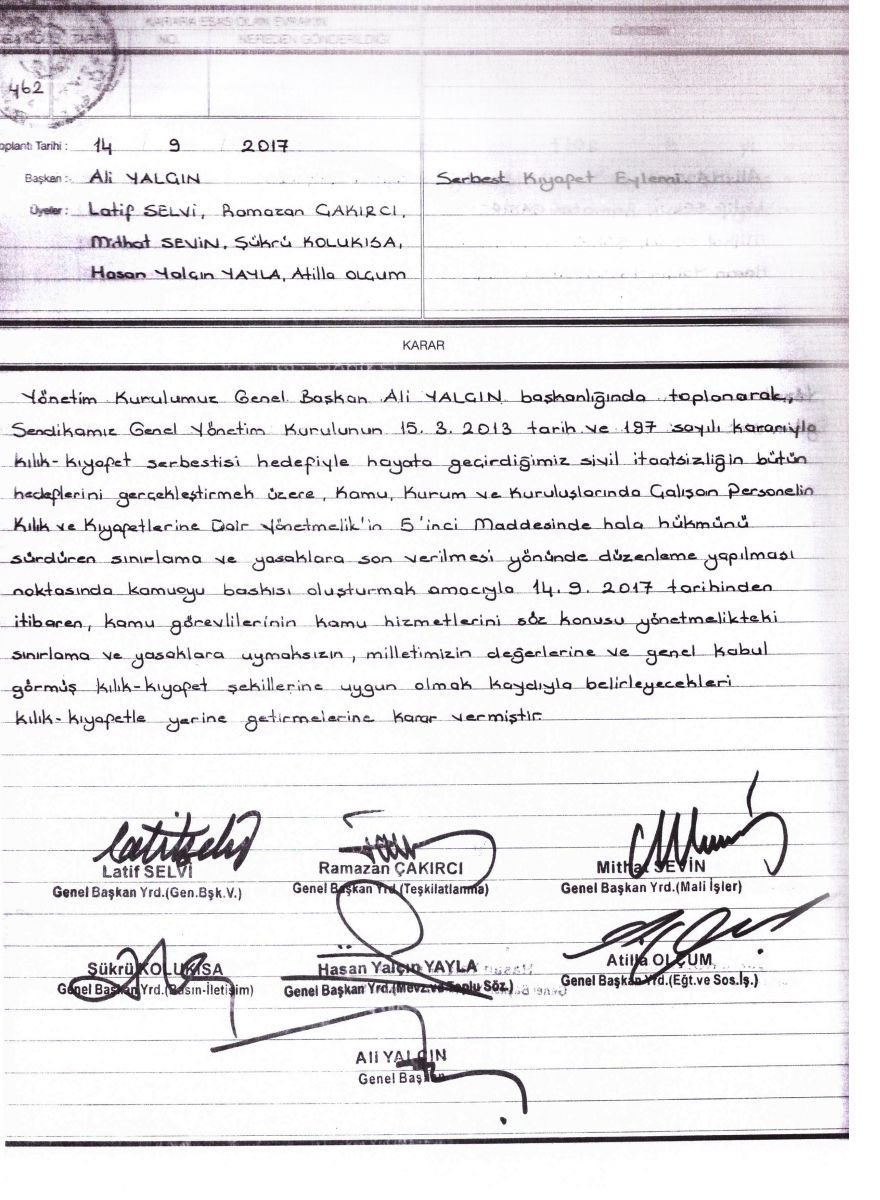 KARARA ESAS OLAN EVRAKIN
TARİHİ NO. NEREDEN GÖNDERİLDİĞİ
GÜNDEM
462
oplantı Tarihi : 14 / 9 / 2017
Başkan : Ali YALÇIN
Serbest Kıyafet Eylemi
Üyeler : Latif SELVİ, Ramazan ÇAKIRCI,
Mithat SEVİN, Şükrü KOLUKISA,
Hasan Yalçın YAYLA, Atilla OLÇUM
KARAR
Yönetim Kurulumuz Genel Başkan Ali YALÇIN başkanlığında toplanarak,
Sendikamız Genel Yönetim Kurulunun 15.3.2013 tarih ve 197 sayılı kararıyla
kılık-kıyafet serbestisi hedefiyle hayata geçirdiğimiz sivil itaatsizliğin bütün
hedeflerini gerçekleştirmek üzere, Kamu, Kurum ve Kuruluşlarında Çalışan Personelin
Kılık ve Kıyafetlerine Dair Yönetmelik'in 5'inci Maddesinde hala hükmünü
sürdüren sınırlama ve yasaklara son verilmesi yönünde düzenleme yapılması
noktasında kamuoyu baskısı oluşturmak amacıyla 14.9.2017 tarihinden
itibaren, kamu görevlilerinin kamu hizmetlerini söz konusu yönetmelikteki
sınırlama ve yasaklara uymaksızın, milletimizin değerlerine ve genel kabul
görmüş kılık-kıyafet şekillerine uygun olmak kaydıyla belirleyecekleri
kılık-kıyafetle yerine getirmelerine karar vermiştir.
Latif SELVİ
Genel Başkan Yrd.(Gen.Bşk.V.)
Ramazan ÇAKIRCI
Genel Başkan Yrd.(Teşkilatlanma)
Mithat SEVİN
Genel Başkan Yrd.(Mali İşler)
Şükrü KOLUKISA
Genel Başkan Yrd.(Basın-İletişim)
Hasan Yalçın YAYLA
Genel Başkan Yrd.(Mevz.ve Toplu Söz.)
Atilla OLÇUM
Genel Başkan Yrd.(Eğt.ve Sos.İş.)
Ali YALÇIN
Genel Başkan